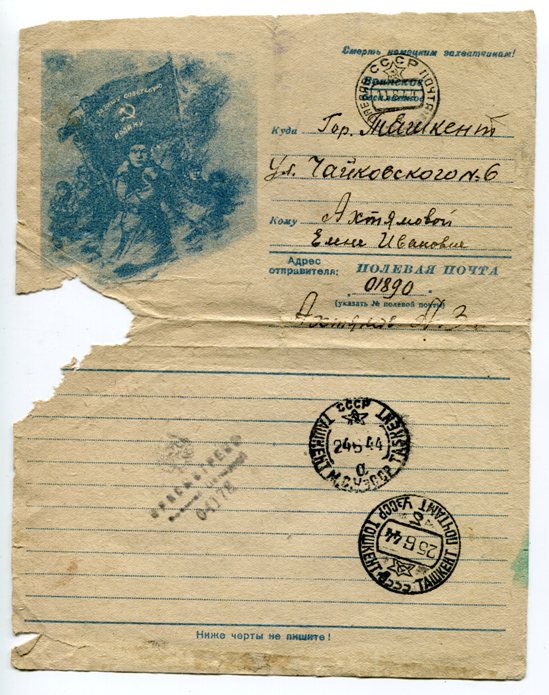 Смерть немецким захватчикам!
СССР
ПОЛЕВАЯ ПОЧТА
Воинское
бесплатное
Куда Гор. Ташкент
ул. Чайковского № 6
Кому Ахтямовой
Елене Ивановне
Адрес отправителя: ПОЛЕВАЯ ПОЧТА
01890
(указать № полевой почты)
СССР
24 6 44
а
ТАШКЕНТ М.С. УзССР ТАШКЕНТ
04178
ТАШКЕНТ ПОЧТАМТ УзССР ТОШКЕНТ
25 6 44
Ниже черты не пишите!